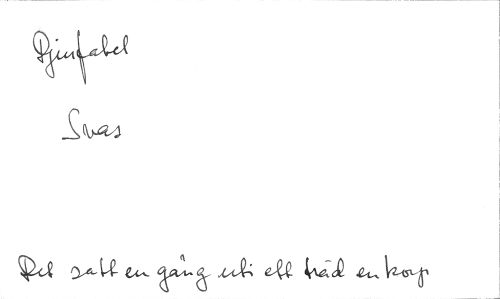 Djurfabel
Svas
Det satt en gång uti ett träd en korp